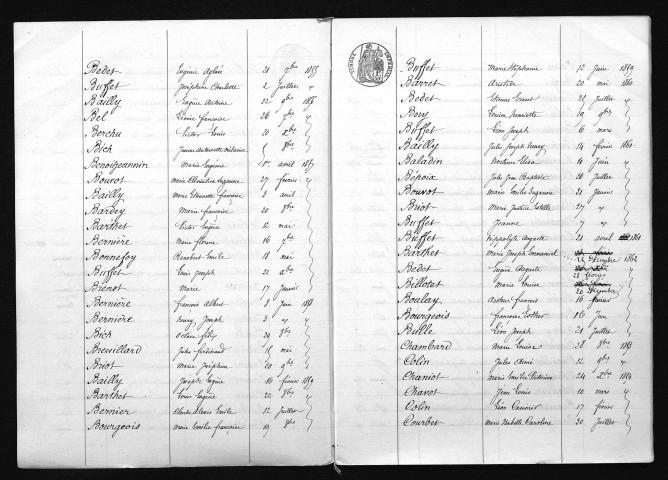 Bedet Eugénie Aglaé 21 7bre 1855
Buffet Joséphine Charlotte 2 Juillet "
Bailly Eugène Antoine 22 9bre 1856
Bel Léonie françoise 26 7bre "
Berchu Victor Louis 20 Xbre
Bich Jeanne Antoinette 5 8bre
Benoitjeannin Marie Eugénie 1er avril 1857
Bouvot Marie Clémentine Suzanne 27 février "
Bailly Marie Etiennette françoise 8 avril
Bardey Marie françoise 20 8bre
Barthet Victor Eugène 12 mai
Bernière Marie 16 7bre
Bonnefoy Rambert Emile 18 mai
Buffet Louis Joseph 22 Xbre
Brenot Marie 17 Janvier
Bernière françois Albert 8 Juin 1858
Bernière henry Joseph 3 "
Bich Octave félix 29 8bre
Breuillard Jules ferdinand 15 mai
Briot Marie Joséphine 20 9bre
Bailly Joseph Eugène 16 février 1859
Barthet Louis Eugène 22 8bre "
Bernier Claude Alexis Emile 12 Juillet
Bourgeois Marie Emilie françoise 19 8bre
Buffet Marie Stéphanie 12 Juin 1859
Barret Aristide 20 mai 1860
Bedet Etienne Ernest 21 Juillet "
Bory Louise henriette 10 9bre "
Buffet Léon Joseph 6 mars
Bailly Jules Joseph henry 14 février 1861
Baladin 4 Juin "
Bépoix Jules Jean Baptiste 26 Juillet
Bouvot Marie Emilie Suzanne 31 Janvier
Briot Marie Justine Estelle 27 "
Buffet Jeanne 7 "
Buffet hippolyte Auguste 21 avril 1861
Barthet Marie Joseph Emmanuel 25 Décembre 1862
Bedet Eugène Auguste 23 février "
Billotet Marie Louise 20 Décembre
Boulay Arthur françois 16 février
Bourgeois françoise Esther 16 Juin
Bulle Léon Joseph 21 Juillet
Chambard Marie Louise 28 8bre 1858
Colin Jules Aimé 12 9bre "
Chaniot Marie Emilie Victorine 24 Xbre 1859
Chavot Jean Louis 10 mars "
Colin Léon Casimir 17 février
Courbet Marie Isabelle Caroline 30 Juillet